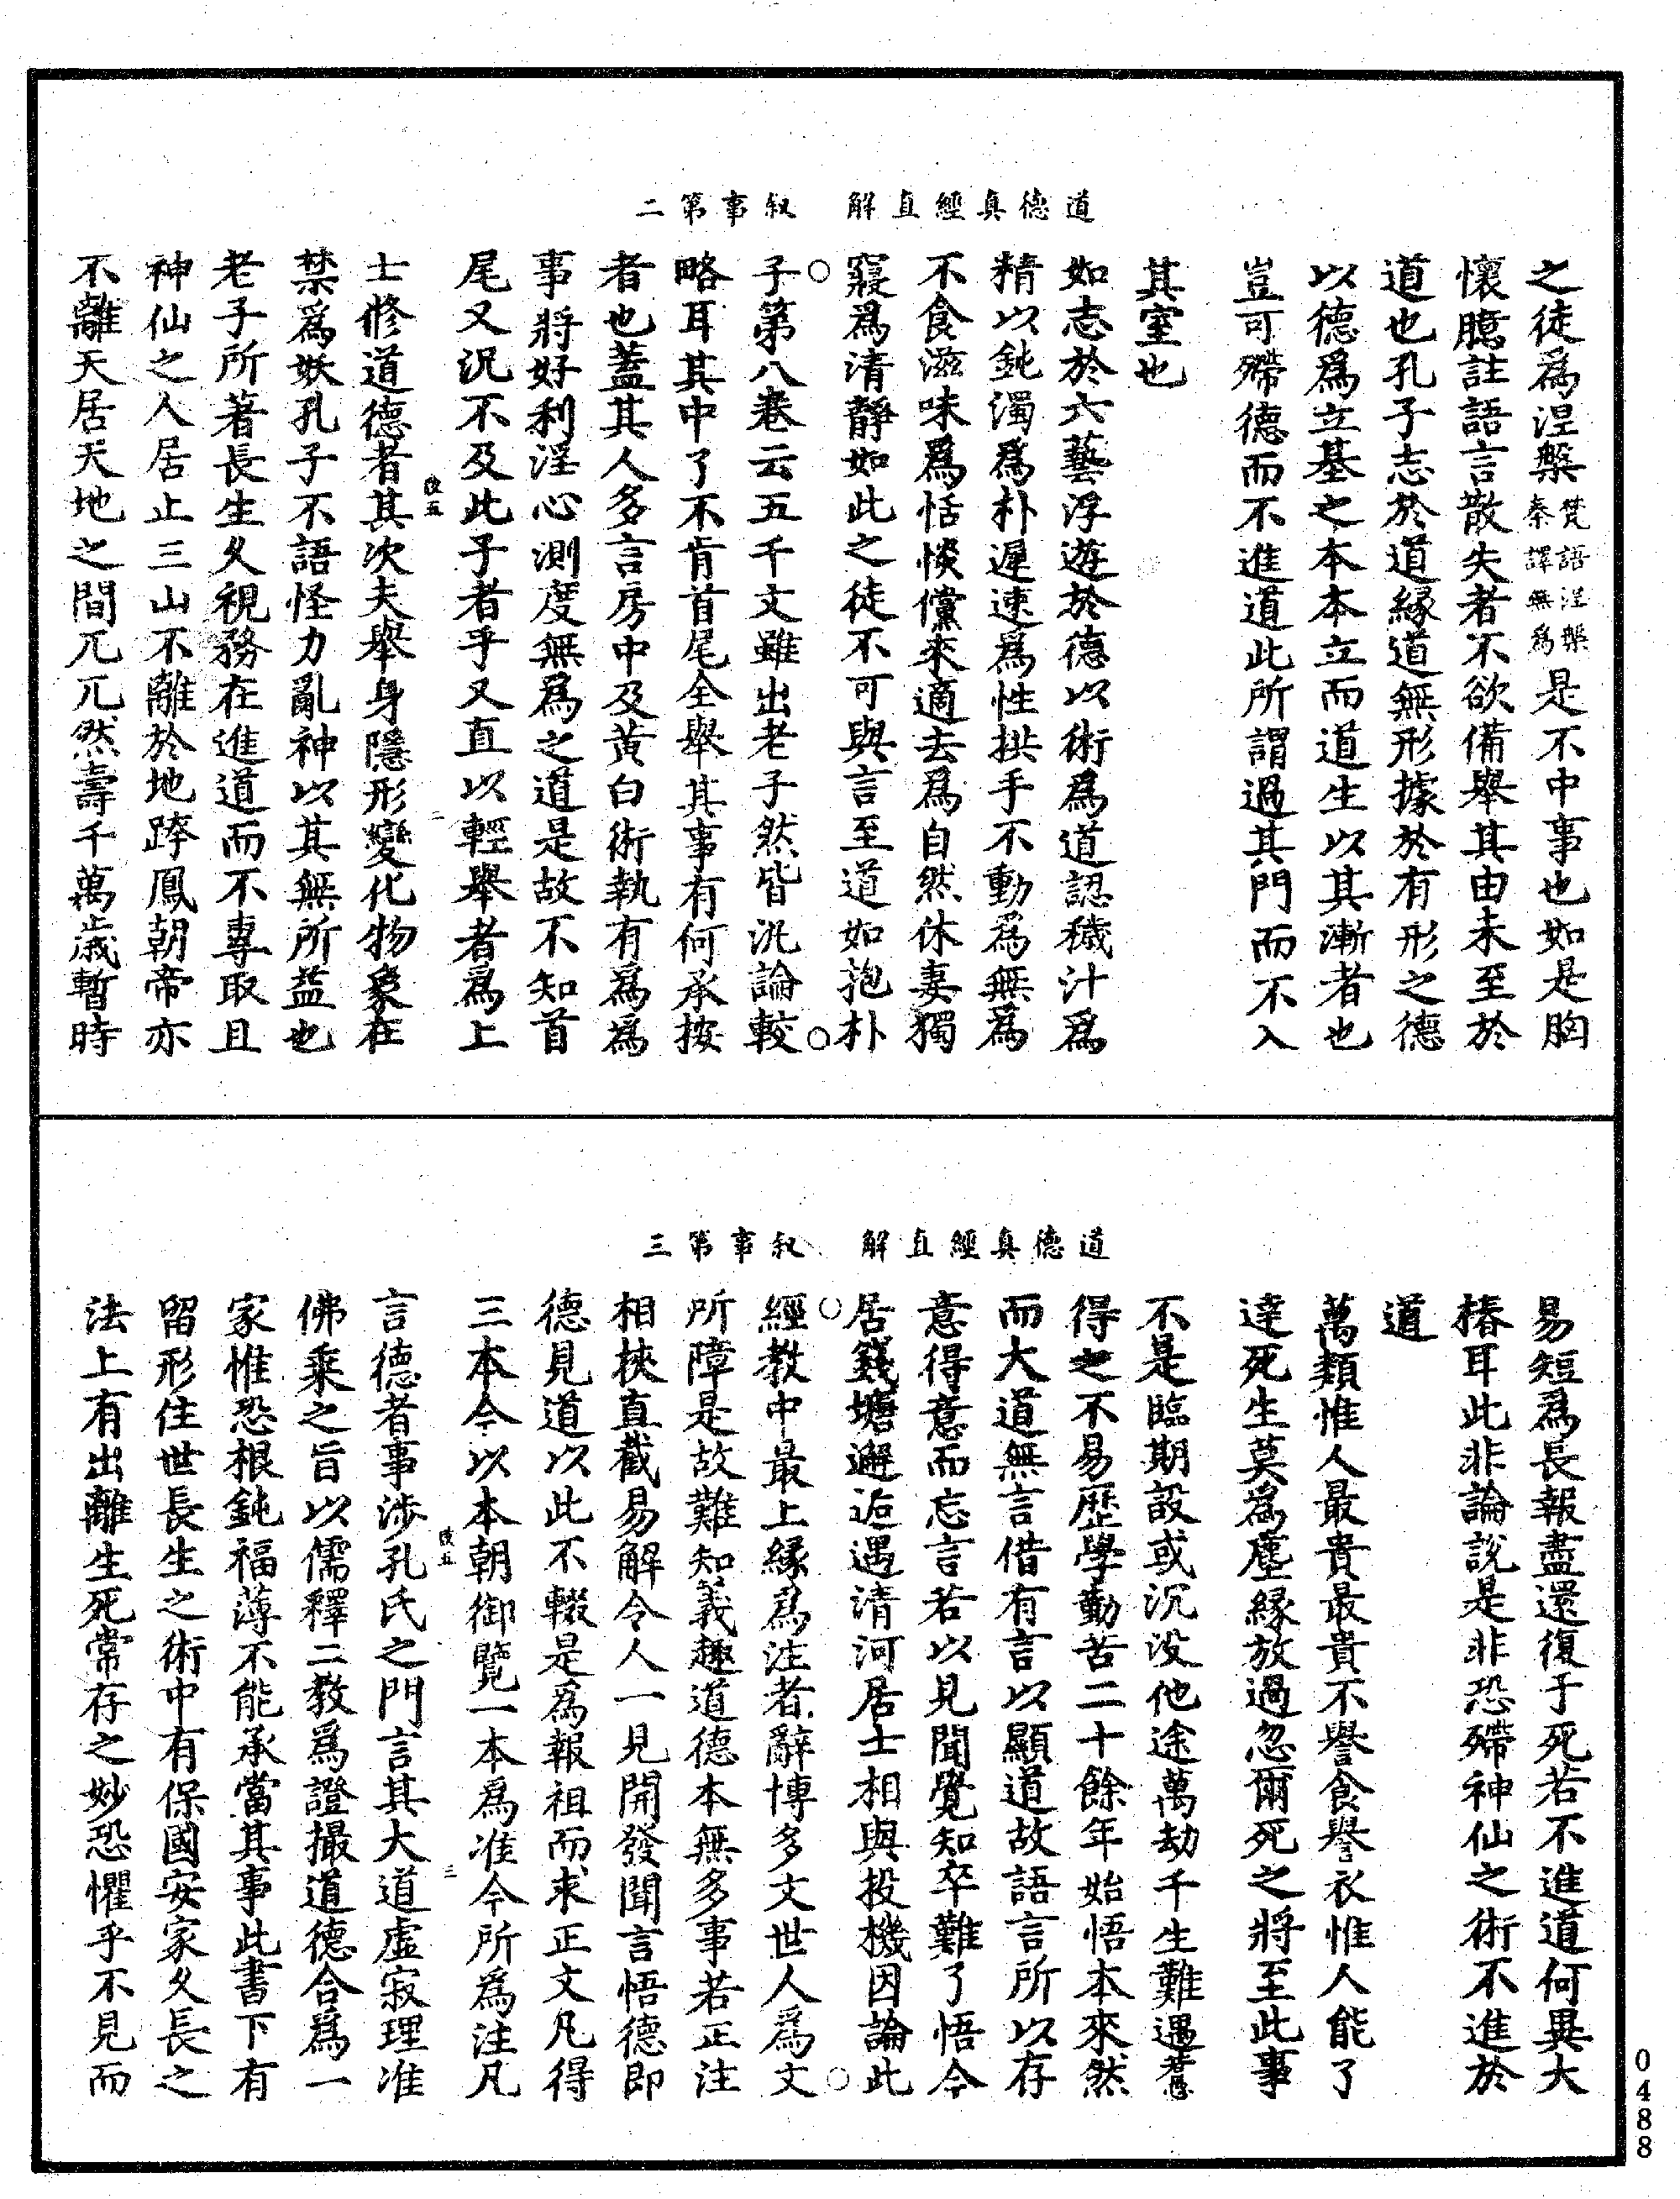 道德真經直解　叙事第二
之徒爲涅槃梵語涅槃秦譯無爲是不中事也如是胸
懷臆註語言散失者不欲備舉其由未至於
道也孔子志於道緣道無形據於有形之德
以德爲立基之本本立而道生以其漸者也
豈可殢德而不進道此所謂過其門而不入
其室也
如志於六藝浮遊於德以術爲道認穢汁爲
精以鈍濁爲朴遲速爲性拱手不動爲無爲
不食滋味爲恬惔儻來適去爲自然休妻獨
寢爲清靜如此之徒不可與言至道如抱朴
子第八卷云五千文雖出老子然皆汎論較
略耳其中了不肯首尾全舉其事有何承按
者也蓋其人多言房中及黃白術執有爲爲
事將好利淫心測度無爲之道是故不知首
尾又況不及此子者乎又直以輕舉者爲上
士修道德者其次夫舉身隱形變化物象在
禁爲妖孔子不語怪力亂神以其無所益也
老子所著長生久視務在進道而不專取且
神仙之人居止三山不離於地跨鳳朝帝亦
不離天居天地之間兀兀然壽千萬歲暫時
道德真經直解　叙事第三
易短爲長報盡還復于死若不進道何異大
椿耳此非論說是非恐殢神仙之術不進於
道
萬類惟人最貴最貴不譽食譽衣惟人能了
達死生莫爲塵緣放過忽爾死之將至此事
不是臨期設或沉没他途萬劫千生難遇若愚
得之不易歷學勤苦二十餘年始悟本來然
而大道無言借有言以顯道故語言所以存
意得意而忘言若以見聞覺知卒難了悟今
居錢塘邂逅遇清河居士相與投機因論此
經教中最上緣爲注者辭博多文世人爲文
所障是故難知義趣道德本無多事若正注
相挾直截易解令人一見開發聞言悟德即
德見道以此不輟是爲報祖而求正文凡得
三本今以本朝御覽一本爲准今所爲注凡
言德者事涉孔氏之門言其大道虛寂理准
佛乘之旨以儒釋二教爲證撮道德合爲一
家惟恐根鈍福薄不能承當其事此書下有
留形住世長生之術中有保國安家久長之
法上有出離生死常存之妙恐懼乎不見而
0488